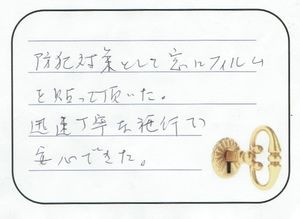 防犯対策として窓にフィルム
を貼って頂いた。
迅速丁寧な施行で
安心できた。